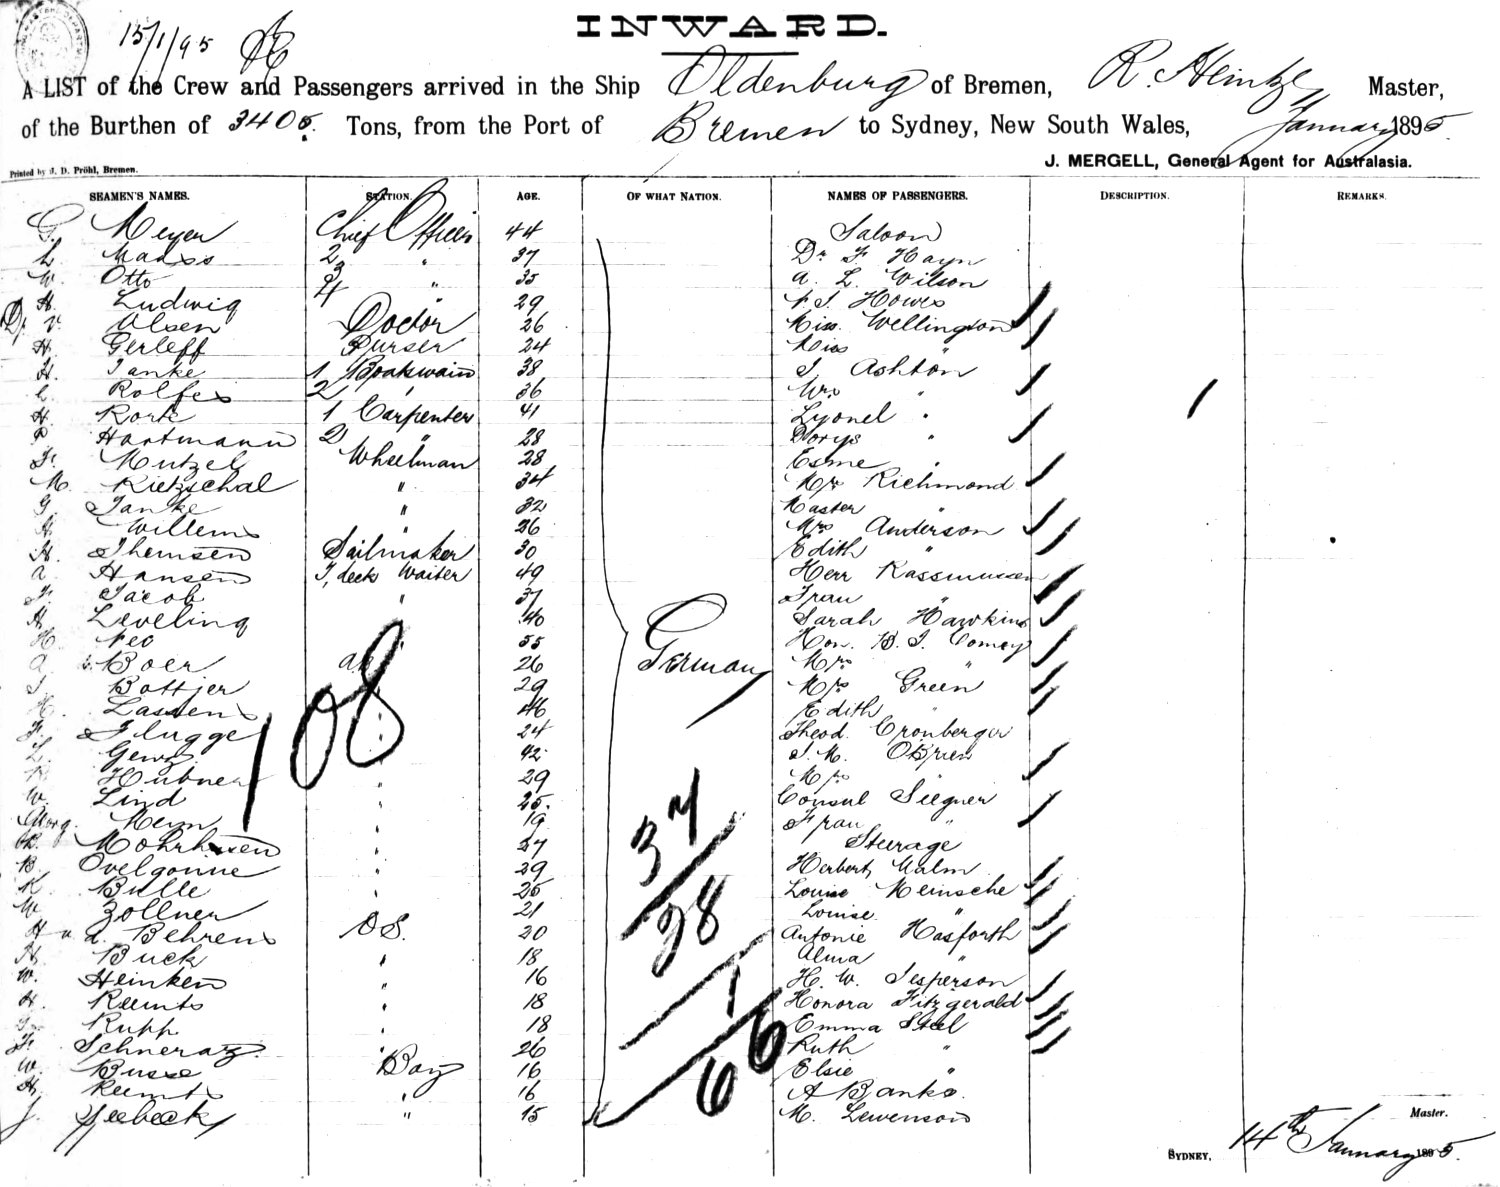 15/1/95
INWARD.
A LIST of the Crew and Passengers arrived in the Ship Oldenburg of Bremen, R. Heintze Master,
of the Burthen of 3405. Tons, from the Port of Bremen to Sydney, New South Wales, January 1895.
Printed by J. D. Pröhl, Bremen.
J. MERGELL, General Agent for Australasia.
SEAMEN'S NAMES. STATION. AGE. OF WHAT NATION. NAMES OF PASSENGERS. DESCRIPTION. REMARKS.
G. Meyer Chief Officer 44 Saloon
L. Madss 2 " 37 Dr F Hayn
W. Otto 3 35 A. L. Wilson
H. Ludwig 4 " 29 Howes
Dr V. Olsen Doctor 26 Miss Wellington
H. Gerleff Purser 24 Miss "
H. Janke 1 Boatswain 38 J Ashton
Rolfes 2 " 36 Mrs "
H Rork 1 Carpenter 41 Lyonel "
Hartmann 2 " 28 Dorys "
Fr. Mutzel Wheelman 28 Esme "
M. Rietzschal " 34 Mrs Richmond
G. Janke " 32 Master "
H. Willems " 26 Mrs Anderson
H. Themsen Sailmaker 30 Edith "
A. Hansen T, deck Waiter 49 Herr Rassmussen
Jacob " 37 Frau "
H Leveling 40 Sarah Hawkins
H. 55 Hon. B. J. Comey
A. Boer 26 German Mrs "
J. Bottjer 29 Mrs Green
Lassens 46 Edith "
F. Flugge 24 Theod. Cronberger
L. " 42 J. M. OBrien
Hübner " 29 Mrs
W. Lind " 25. Consul Siegner
Georg. " 19 Frau "
Mohrhusen " 27 Steerage
B Ovelgonne " 29 Herbert Malm
K. Bulle " 25 Louise Meinsche
W Zollner " 21 Louise "
H v. d. Behrens O S. 20 Antonie Hasforth
H. Buck " 18 Alma "
W. Heinken " 16 H. W. Jesperson
H. Reemts " 18 Honora Fitzgerald
Rupp " 18 Emma Steel
Fr. Schneratz " 26 Ruth "
W. Busse Boy 16 Elsie "
H. Reemts " 16 A Banks.
J. Seebeck " 15 M. Lewenson
108
37
28
1
66
Master.
SYDNEY, 14th January 1895.